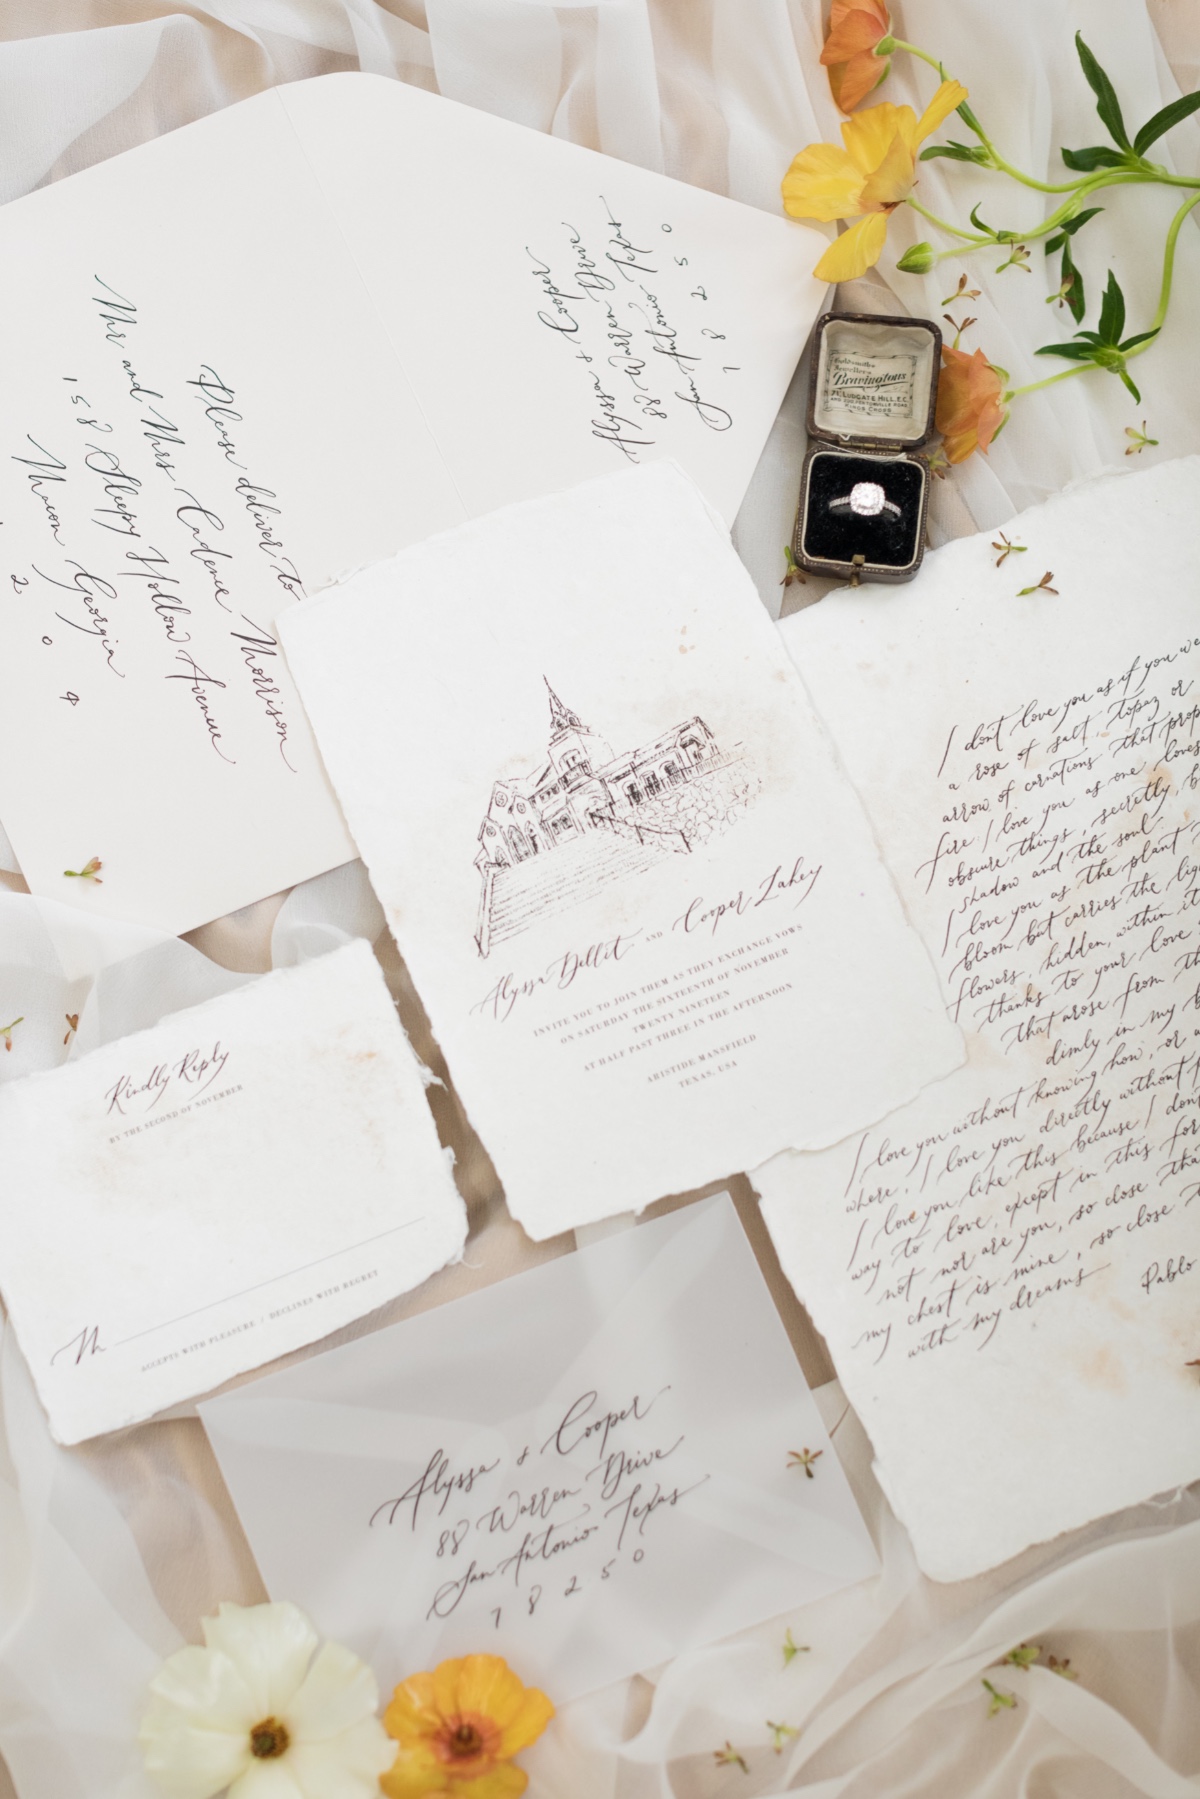 Please deliver to
Mr and Mrs Cadence Morrison
158 Sleepy Hollow Avenue
Macon Georgia
2 0 4
Alyssa & Cooper
88 Warren Drive
San Antonio Texas
7 8 2 5 0
Goldsmiths
Jewellers
Bravingtons
71, LUDGATE HILL, E.C.
KINGS CROSS
Alyssa Dellit AND Cooper Lahey
INVITE YOU TO JOIN THEM AS THEY EXCHANGE VOWS
ON SATURDAY THE SIXTEENTH OF NOVEMBER
TWENTY NINETEEN
AT HALF PAST THREE IN THE AFTERNOON
ARISTIDE MANSFIELD
TEXAS, USA
I don't love you as if you we
a rose of salt, topaz or
arrow of carnations that prop
fire: I love you as one loves
obscure things, secretly, b
shadow and the soul.
I love you as the plant
bloom but carries the lig
flowers, hidden, within it
thanks to your love
that arose from th
dimly in my b
I love you without knowing how, or
where, I love you directly without p
I love you like this because I don
way to love, except in this for
not nor are you, so close tha
my chest is mine, so close
with my dreams
Pablo
Kindly Reply
BY THE SECOND OF NOVEMBER
M
ACCEPTS WITH PLEASURE / DECLINES WITH REGRET
Alyssa & Cooper
88 Warren Drive
San Antonio Texas
7 8 2 5 0